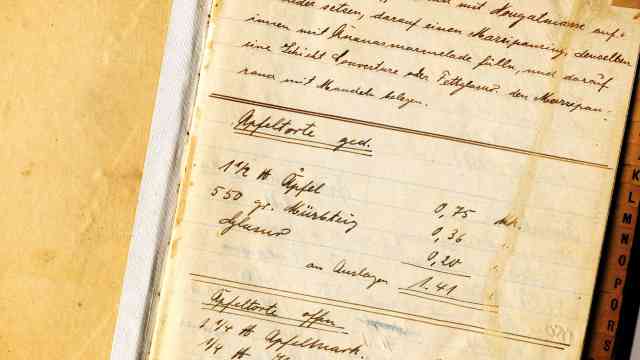 setzen, darauf einen Marzipanring, denselben
innen mit Ananasmarmelade füllen, und darauf
eine Schicht Couverture oder Fettglasur. den Marzipan-
rand mit Mandeln belegen.
Apfeltorte ged.
1 1/2 ℔ Äpfel 0,75 Mk.
550 gr. Mürbteig 0,36 "
Glasur 0,20 "
an Auslagen 1.41 "
Apfeltorte offen
1 1/4 ℔ Apfelmark.
1/4 ℔
K
L
M
N
O
P
Q
R
S